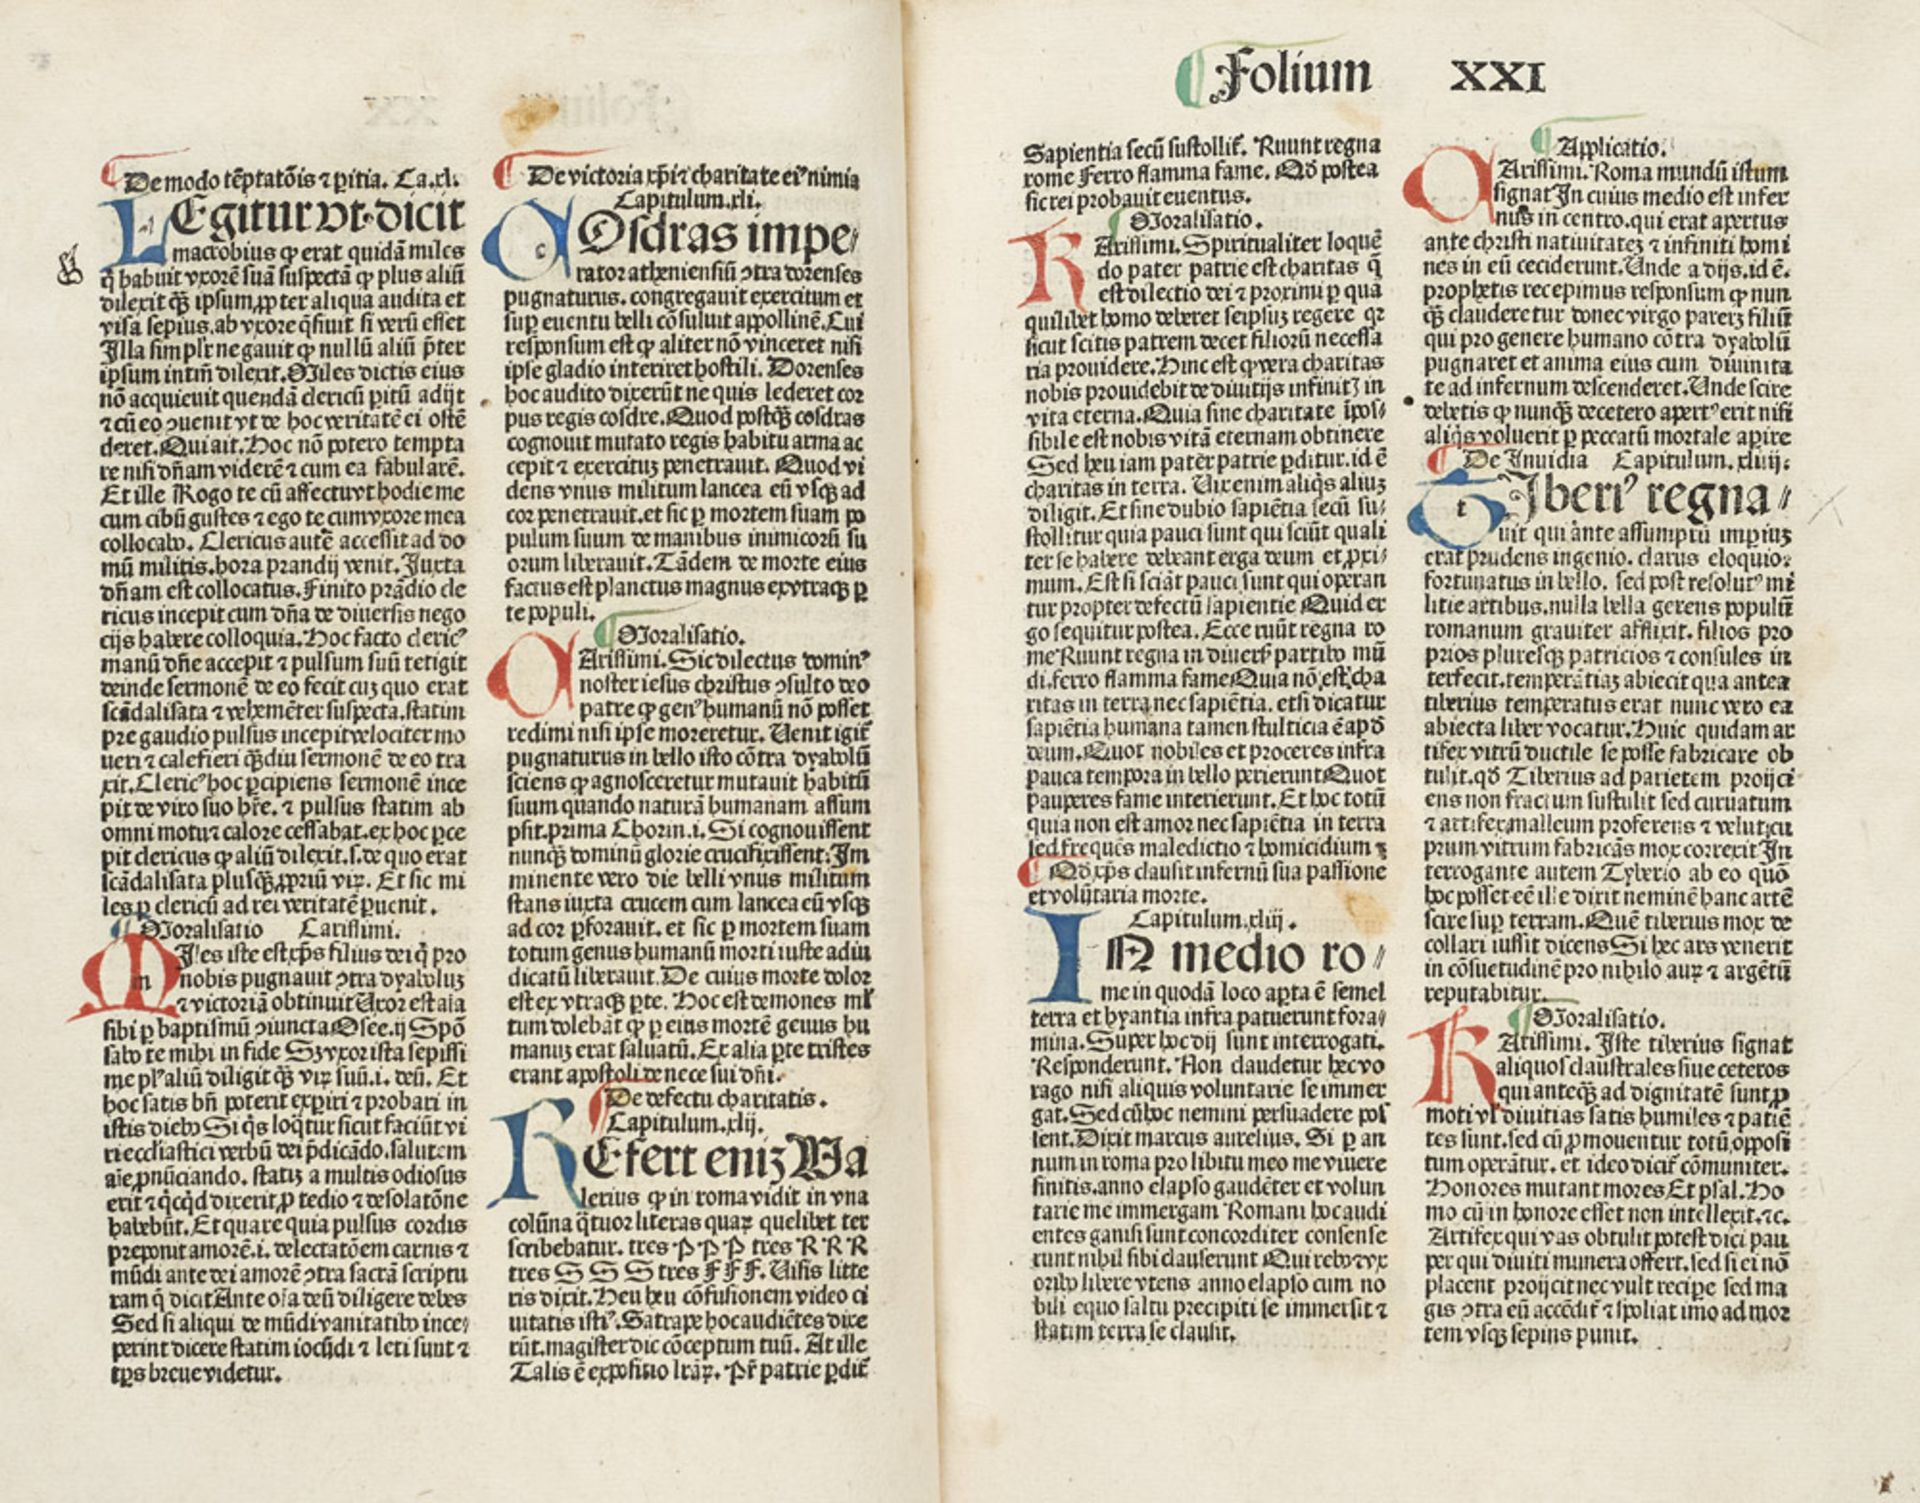 De modo tēptatōis ⁊ ꝑitia. Ca.xl.
LEgitur vt dicit
macrobius ꝙ erat quidā miles
q̄ habuit vxorē suā suspectā ꝙ plus aliū
dilexit q̄ꝫ ipsum, ꝓpter aliqua audita et
visa sepius. ab vxore q̄siuit si verū esset
Illa simplr̄ negauit ꝙ nullū aliū p̄ter
ipsum intim̄ dilexit. Miles dictis eius
nō acquieuit quendā clericū ꝑitū adijt
⁊ cū eo ꝯuenit vt de hoc veritatē ei ostē
deret. Qui ait. Hoc nō potero tempta
re nisi dn̄am viderē ⁊ cum ea fabularē.
Et ille Rogo te cū affectu vt hodie me
cum cibū gustes ⁊ ego te cum vxore mea
collocabo. Clericus autē accessit ad do
mū militis. hora prandij venit. Iuxta
dn̄am est collocatus. Finito prādio cle
ricus incepit cum dn̄a de diuersis nego
cijs habere colloquia. Hoc facto cleric᷒
manū dn̄e accepit ⁊ pulsum suū tetigit
deinde sermonē de eo fecit cuꝫ quo erat
scādalisata ⁊ vehemēter suspecta. statim
pre gaudio pulsus incepit velociter mo
ueri ⁊ calefieri q̄ꝫdiu sermonē de eo tra
xit. Cleric᷒ hoc ꝑcipiens sermonē ince
pit de viro suo hr̄e. ⁊ pulsus statim ab
omni motu ⁊ calore cessabat. ex hoc ꝑce
pit clericus ꝙ aliū dilexit. s. de quo erat
scādalisata plusq̄ꝫ ꝓpriū viꝝ. Et sic mi
les ꝑ clericū ad rei veritatē ꝑuenit.
Moralisatio Carissimi.
MIles iste est xp̄s filius dei q̄ pro
nobis pugnauit ꝯtra dyaboluꝫ
⁊ victoriā obtinuit Uxor est aīa
sibi ꝑ baptismū ꝯiuncta Osee. ij Spō
sabo te mihi in fide Sꝫ vxor ista sepissi
me pl᷒ aliū diligit q̄ꝫ viꝝ suū. i. deū. Et
hoc satis bn̄ poterit exꝑiri ⁊ probari in
istis dieb᷒ Si q̄s loq̄tur sicut faciūt vi
ri ecclīastici verbū dei p̄dicādo. salutem
aīe ꝓnūciando. statiꝫ a multis odiosus
erit ⁊ q̄cq̄d dixerit ꝓ tedio ⁊ desolatōne
habebūt. Et quare quia pulsus cordis
preponit amorē. i. delectatōem carnis ⁊
mūdi ante dei amorē ꝯtra sacrā scriptu
ram q̄ dicit Ante oīa deū diligere debes
Sed si aliqui de mūdi vanitatib᷒ ince⸗
perint dicere statim iocūdi ⁊ leti sunt ⁊
tp̄s breue videtur.
De victoria xp̄i ⁊ charitate ei᷒ nimia
Capitulum. xli.
COsdras impe⸗
rator atheniensiū ꝯtra dorenses
pugnaturus. congregauit exercitum et
suꝑ euentu belli cōsuluit appollinē. Cui
responsum est ꝙ aliter nō vinceret nisi
ipse gladio interiret hostili. Dorenses
hoc audito dixerūt ne quis lederet cor
pus regis cosdre. Quod postq̄ꝫ cosdras
cognouit mutato regis habitu arma ac
cepit ⁊ exercituꝫ penetrauit. Quod vi
dens vnus militum lancea eū vsqꝫ ad
cor penetrauit. et sic ꝑ mortem suam po
pulum suum de manibus inimicorū su
orum liberauit. Tādem de morte eius
factus est planctus magnus ex vtraqꝫ ꝑ
te populi.
Moralisatio.
CArissimi. Sic dilectus domin᷒
noster iesus christus ꝯsulto deo
patre ꝙ gen᷒ humanū nō posset
redimi nisi ipse moreretur. Uenit igit᷑
pugnaturus in bello isto cōtra dyabolū
sciens ꝙ agnosceretur mutauit habitū
suum quando naturā humanam assum
psit. prima Chorin. i. Si cognouissent
nunq̄ꝫ dominū glorie crucifixissent. Im
minente vero die belli vnus militum
stans iuxta crucem cum lancea eū vsqꝫ
ad cor ꝑforauit. et sic ꝑ mortem suam
totum genus humanū morti iuste adiu
dicatū liberauit. De cuius morte dolor
est ex vtraqꝫ ꝑte. Hoc est demones ml̄
tum dolebāt ꝙ ꝑ eius mortē genus hu
manuꝫ erat saluatū. Ex alia ꝑte tristes
erant apostoli de nece sui dn̄i.
De defectu charitatis.
Capitulum. xlij.
REfert eniꝫ Va
lerius ꝙ in roma vidit in vna
colūna q̄tuor literas quaꝝ quelibet ter
scribebatur. tres P P P tres R R R
tres S S S tres F F F. Uisis litte
ris dixit. Heu heu cōfusionem video ci
uitatis isti᷒. Satrape hoc audiētes dixe
rūt. magister dic cōceptum tuū. At ille
Talis ē expositio lr̄aꝝ. Pr̄ patrie ꝑdit᷑
Folium XXI
Sapientia secū sustollit᷑. Ruunt regna
rome Ferro flamma fame. Qd̄ postea
sic rei probauit euentus.
Moralisatio.
KArissimi. Spiritualiter loquē
do pater patrie est charitas q̄
est dilectio dei ⁊ proximi ꝑ quā
quilibet homo deberet seipsuꝫ regere qꝛ
sicut scitis patrem decet filiorū necessa
ria prouidere. Hinc est ꝙ vera charitas
nobis prouidebit de diuitijs infinitꝭ in
vita eterna. Quia sine charitate īpos⸗
sibile est nobis vitā eternam obtinere
Sed heu iam pater patrie ꝑditur. id ē
charitas in terra. Uix enim aliq̄s aliuꝫ
diligit. Et sine dubio sapiētia secū su⸗
stollitur quia pauci sunt qui sciūt quali
ter se habere debeant erga deum et ꝓxi⸗
mum. Est si sciāt pauci sunt qui operan
tur propter defectū sapientie Quid er
go sequitur postea. Ecce ruūt regna ro
me Ruunt regna in diuers᷒ partib᷒ mū
di. ferro flamma fame Quia nō est cha
ritas in terra nec sapiētia. etsi dicatur
sapiētia humana tamen stulticia ē apd̄
deum. Quot nobiles et proceres infra
pauca tempora in bello perierunt Quot
pauperes fame interierunt. Et hoc totū
quia non est amor nec sapiētia in terra
sed frequēs maledictio ⁊ homicidium
Qd̄ xp̄s clausit infernū sua passione
et volūtaria morte.
Capitulum. xliij.
IN medio ro⸗
me in quodā loco aꝑta ē semel
terra et hyantia infra patuerunt fora⸗
mina. Super hoc dij sunt interrogati.
Responderunt. Non claudetur hec vo
rago nisi aliquis voluntarie se immer
gat. Sed cū hoc nemini persuadere pos
sent. Dixit marcus aurelius. Si ꝑ an
num in roma pro libitu meo me viuere
sinitis. anno elapso gaudēter et volun
tarie me immergam Romani hoc audi
entes gauisi sunt concorditer consense
runt nihil sibi clauserunt Qui reb᷒ ⁊ vx
orib᷒ libere vtens anno elapso cum no
bili equo saltu precipiti se immersit ⁊
statim terra se clausit.
Applicatio.
CArissimi. Roma mundū istum
signat In cuius medio est infer
nus in centro. qui erat apertus
ante christi natiuitateꝫ ⁊ infiniti homi
nes in eū ceciderunt. Unde a dijs. id ē.
prophetis recepimus responsum ꝙ nun
q̄ꝫ clauderetur donec virgo pareꝫ filiū
qui pro genere humano cōtra dyabolū
pugnaret et anima eius cum diuinita
te ad infernum descenderet. Unde scire
debetis ꝙ nunq̄ꝫ decetero apert᷒ erit nisi
aliq̄s voluerit ꝑ peccatū mortale aꝑire
De Inuidia Capitulum. xliiij.
TIberi᷒ regna⸗
uit qui ante assumptū imꝑiuꝫ
erat prudens ingenio. clarus eloquio.
fortunatus in bello. sed post resolut᷒ mi
litie artibus. nulla bella gerens populū
romanum grauiter afflixit. filios pro
prios pluresqꝫ patricios ⁊ consules in
terfecit. temperātiaꝫ abiecit qua antea
tiberius temperatus erat nunc vero ea
abiecta liber vocatur. Huic quidam ar
tifex vitrū ductile se posse fabricare ob
tulit. qd̄ Tiberius ad parietem proijci
ens non fractum sustulit sed curuatum
⁊ artifex malleum proferens ⁊ velut cu
prum vitrum fabricās mox correxit In
terrogante autem Tyberio ab eo quō
hoc posset eē ille dixit neminē hanc artē
scire suꝑ terram. Quē tiberius mox de
collari iussit dicens Si hec ars venerit
in cōsuetudinē pro nihilo auꝝ ⁊ argētū
reputabitur.
Moralisatio.
KArissimi. Iste tiberius signat
aliquos claustrales siue ceteros
qui anteq̄ꝫ ad dignitatē sunt ꝓ
moti vl̄ diuitias satis humiles ⁊ patiē
tes sunt. sed cū ꝓmouentur totū opposi
tum operātur. et ideo dicit᷑ cōmuniter.
Honores mutant mores Et psal. Ho
mo cū in honore esset non intellexit. ⁊c.
Artifex qui vas obtulit potest dici pau
per qui diuiti munera offert. sed si ei nō
placent proijcit nec vult recipe sed ma
gis ꝯtra eū accēdit᷑ ⁊ spoliat imo ad mor
tem vsqꝫ sepius punit.